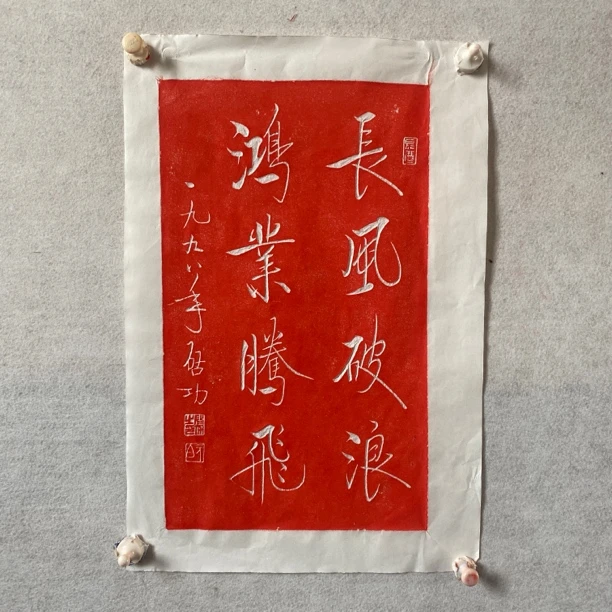 長風破浪
鴻業騰飛
一九九八年啓功